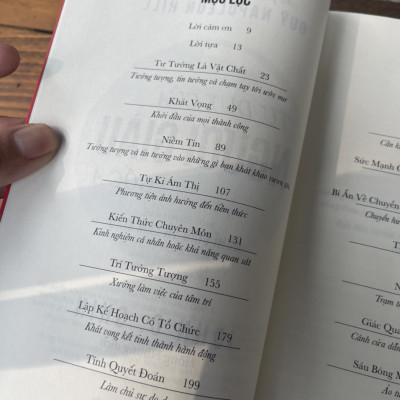 MỤC LỤC
Lời cảm ơn 9
Lời tựa 13
Tư Tưởng Là Vật Chất 23
Tưởng tượng, tin tưởng và chạm tay tới ước mơ
Khát Vọng 49
Khởi đầu của mọi thành công
Niềm Tin 89
Tưởng tượng và tin tưởng vào những gì bạn khát khao
Tự Kỉ Ám Thị 107
Phương tiện ảnh hưởng đến tiềm thức
Kiến Thức Chuyên Môn 131
Kinh nghiệm cá nhân hoặc khả năng quan sát
Trí Tưởng Tượng 155
Xưởng làm việc của tâm trí
Lập Kế Hoạch Có Tổ Chức 179
Khát vọng kết tinh thành hành động
Tính Quyết Đoán 199
Làm chủ sự do dự
Sức Mạnh
Bí Ẩn Về Chuyển
Giác Qua
Cánh cửa dẫn
Sáu Bóng M